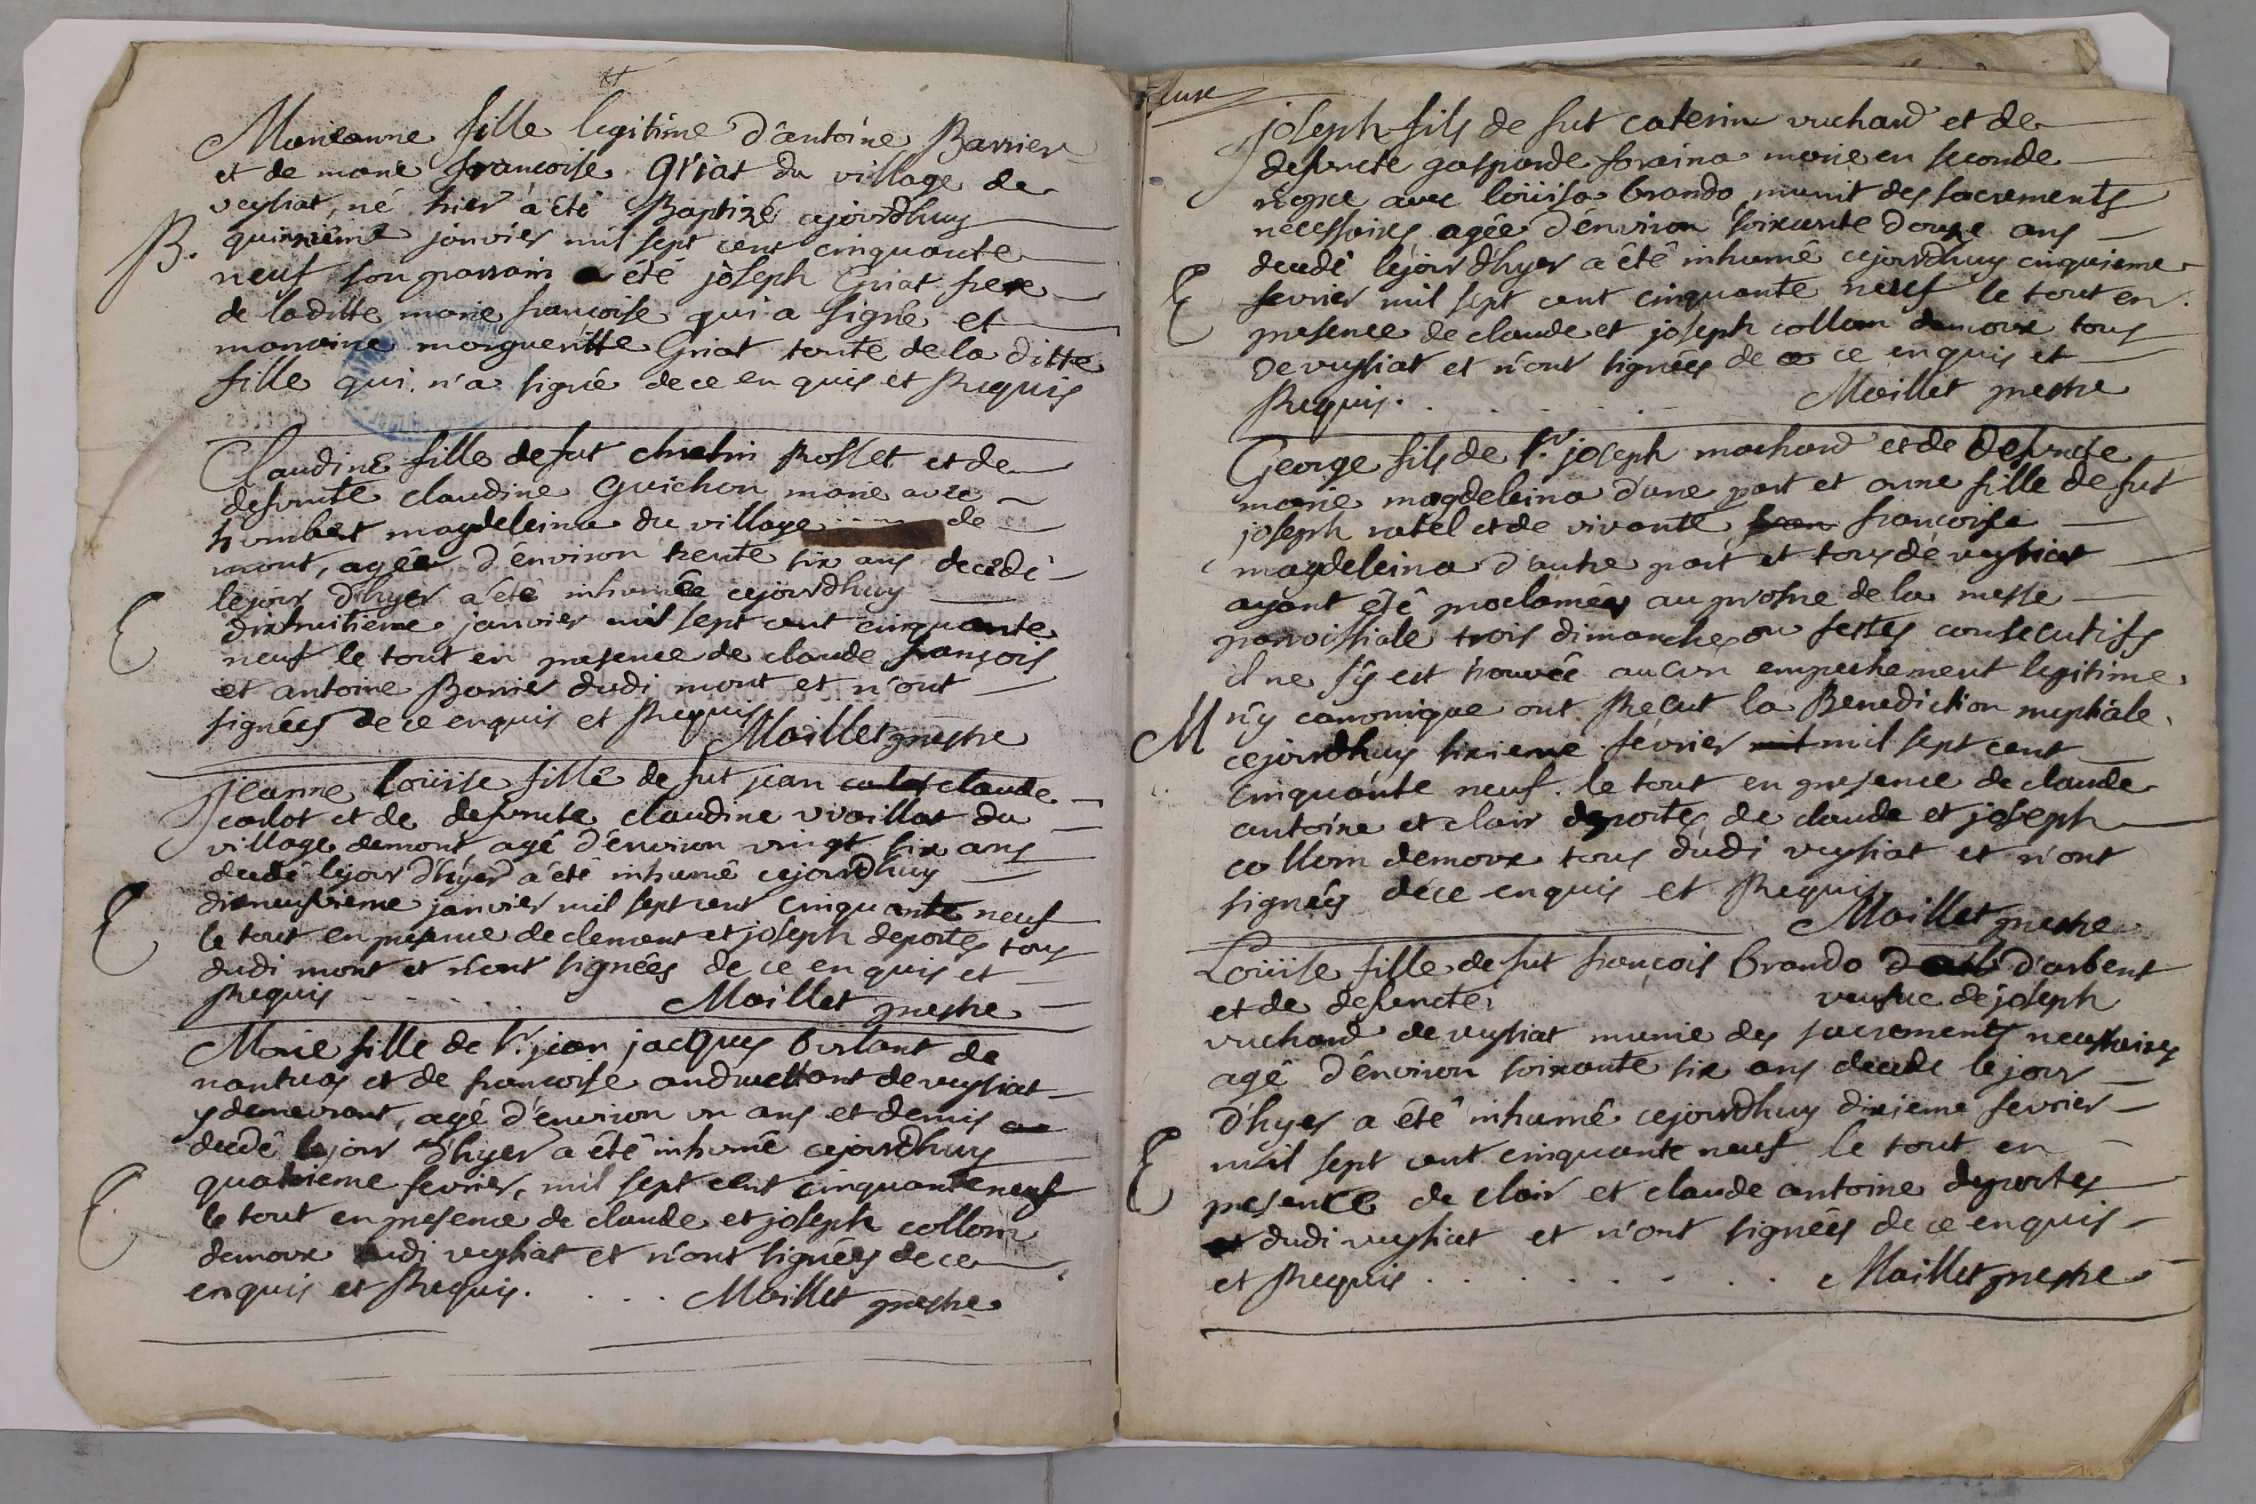 Marieanne fille legitime d'antoine Barrier
et de marie francoise Griat du village de
veysiat, né hier a été Baptizé cejourdhuy
B. quinzieme janvier mil sept cent cinquante
neuf son parrain a été joseph Griat frere
de laditte marie francoise qui a signé et
marraine margueritte Griat tante de la ditte
fille qui n'a signé de ce en quis et Requis
Claudine fille de fut Rosset et de
defuncte claudine Guichon marie avec
humbert magdeleina du village de
mont, agée d'environ trente six ans decedé
le jour d'hyer a été inhumée cejourdhuy
E dixhuitieme janvier mil sept cent cinquante
neuf le tout en presence de claude françois
et antoine Barrier dudi mont et n'ont
signées de ce enquis et Requis
Maillet prestre
Jeanne Loüise fille de fut jean carlot claude
carlot et de defuncte claudine vvaillat du
village demont agé d'environ vingt six ans
decedé le jour d'hyer a été inhumé cejourdhuy
E dixneufvieme janvier mil sept cent cinquante neuf
le tout en presence de clement et joseph deportes tous
dudi mont et n'ont signées de ce en quis et
Requis . . . . . Maillet prestre
Marie fille de Sr. jean jacques burlant de
nantuas et de francoise andruettant de veysiat
y demeurant, agé d'environ un ans et demis
decedé le jour d'hyer a été inhumé cejourdhuy
E quatrieme fevrier, mil sept cent cinquante neuf
le tout en presence de claude et joseph collom
demoux dudi veysiat et n'ont signées de ce
enquis et Requis. . . . Maillet prestre
joseph fils de fut caterin vuchard et de
defuncte gasparde foraina marie en seconde
nopce avec loüisa brando munit des sacrements
necessaires agée d'environ soixante douze ans
decedé lejour d'hyer a été inhumé cejourdhuy cinquieme
E fevrier mil sept cent cinquante neuf le tout en
presence de claude et joseph collom demoux tous
de veysiat et n'ont signées de ce enquis et
Requis. . . . . . Maillet prestre
George fils de Sr. joseph machard et de defuncte
marie magdeleina d'une part et anne fille de fut
joseph ratel et de vivante fran francoise
magdeleina d'autre part et tous de veysiat
ayant été proclamées au prosne de la messe
parroissiale trois dimanches ou festes consecutifs
il ne s'y est trouvée aucun empechement legitime
M n'y canonique ont Recut la Benediction nuptiale
cejourdhuy sixieme fevrier mil mil sept cent
cinquante neuf. le tout en presence de claude
antoine et clair deportes de claude et joseph
collom demoux tous dudi veysiat et n'ont
signées de ce enquis et Requis
Maillet prestre
Loüise fille de fut françois Brando d'arbent
et de defuncte veufue de joseph
vuchard de veysiat munie des sacrements necessaires
agé d'environ soixante six ans decede le jour
d'hyer a été inhumé cejourdhuy dixieme fevrier
E mil sept cent cinquante neuf le tout en
presence de clair et claude antoine deportes
et dudi veysiat et n'ont signées de ce enquis
et Requis . . . . . . . . Maillet prestre